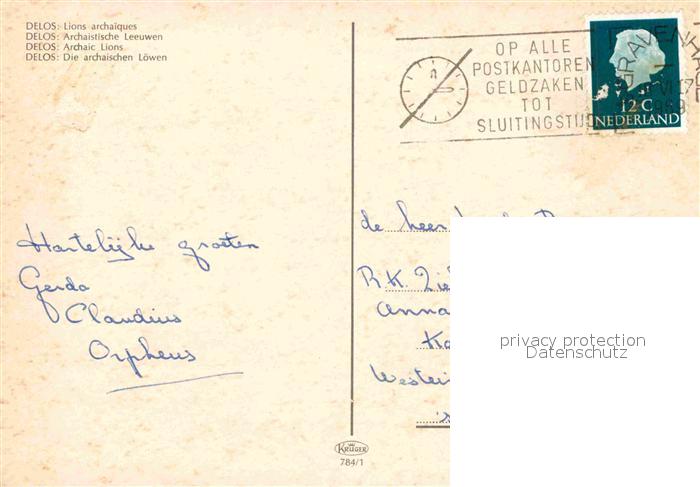 DELOS: Lions archaïques
DELOS: Archaistische Leeuwen
DELOS: Archaic Lions
DELOS: Die archaischen Löwen
OP ALLE
POSTKANTOREN
GELDZAKEN
TOT
SLUITINGSTIJD
12 C
NEDERLAND
Hartelijke groeten
Gerda
Claudius
Orpheus
de heer
R.K. Zie
Anna
Westei
privacy protection
Datenschutz
KRÜGER
784/1